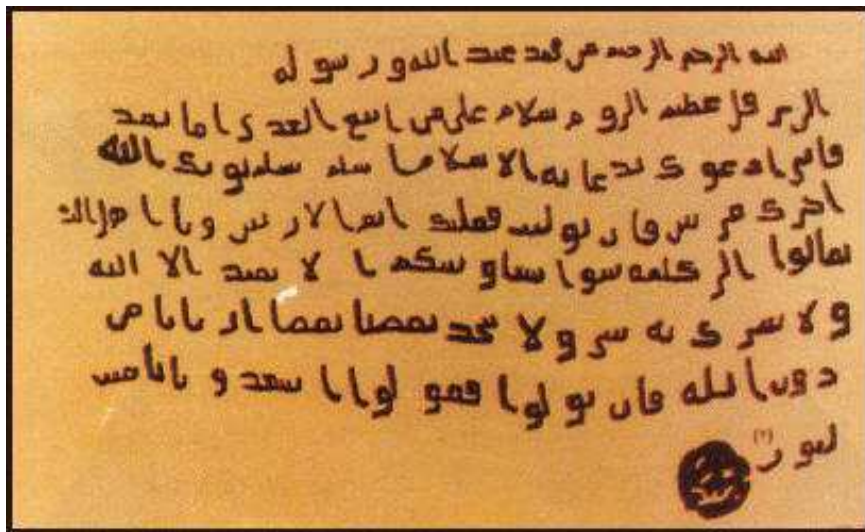 الله الرحمن الرحيم من محمد عبد الله ورسوله
الى هرقل عظيم الروم سلام على من اتبع الهدى اما بعد
فانى ادعوك بدعاية الاسلام اسلم تسلم يوتك الله
اجرك مرتين فان توليت فعليك اثم الاريسين ويا اهل الك
تعالوا الى كلمة سوا بيننا وبينكم ا لا نعبد الا الله
ولا نشرك به شي ولا يتخذ بعضنا بعضا اربابا من
دون الله فان تولوا فقولوا اشهدوا بانا مس
لمون (٢)